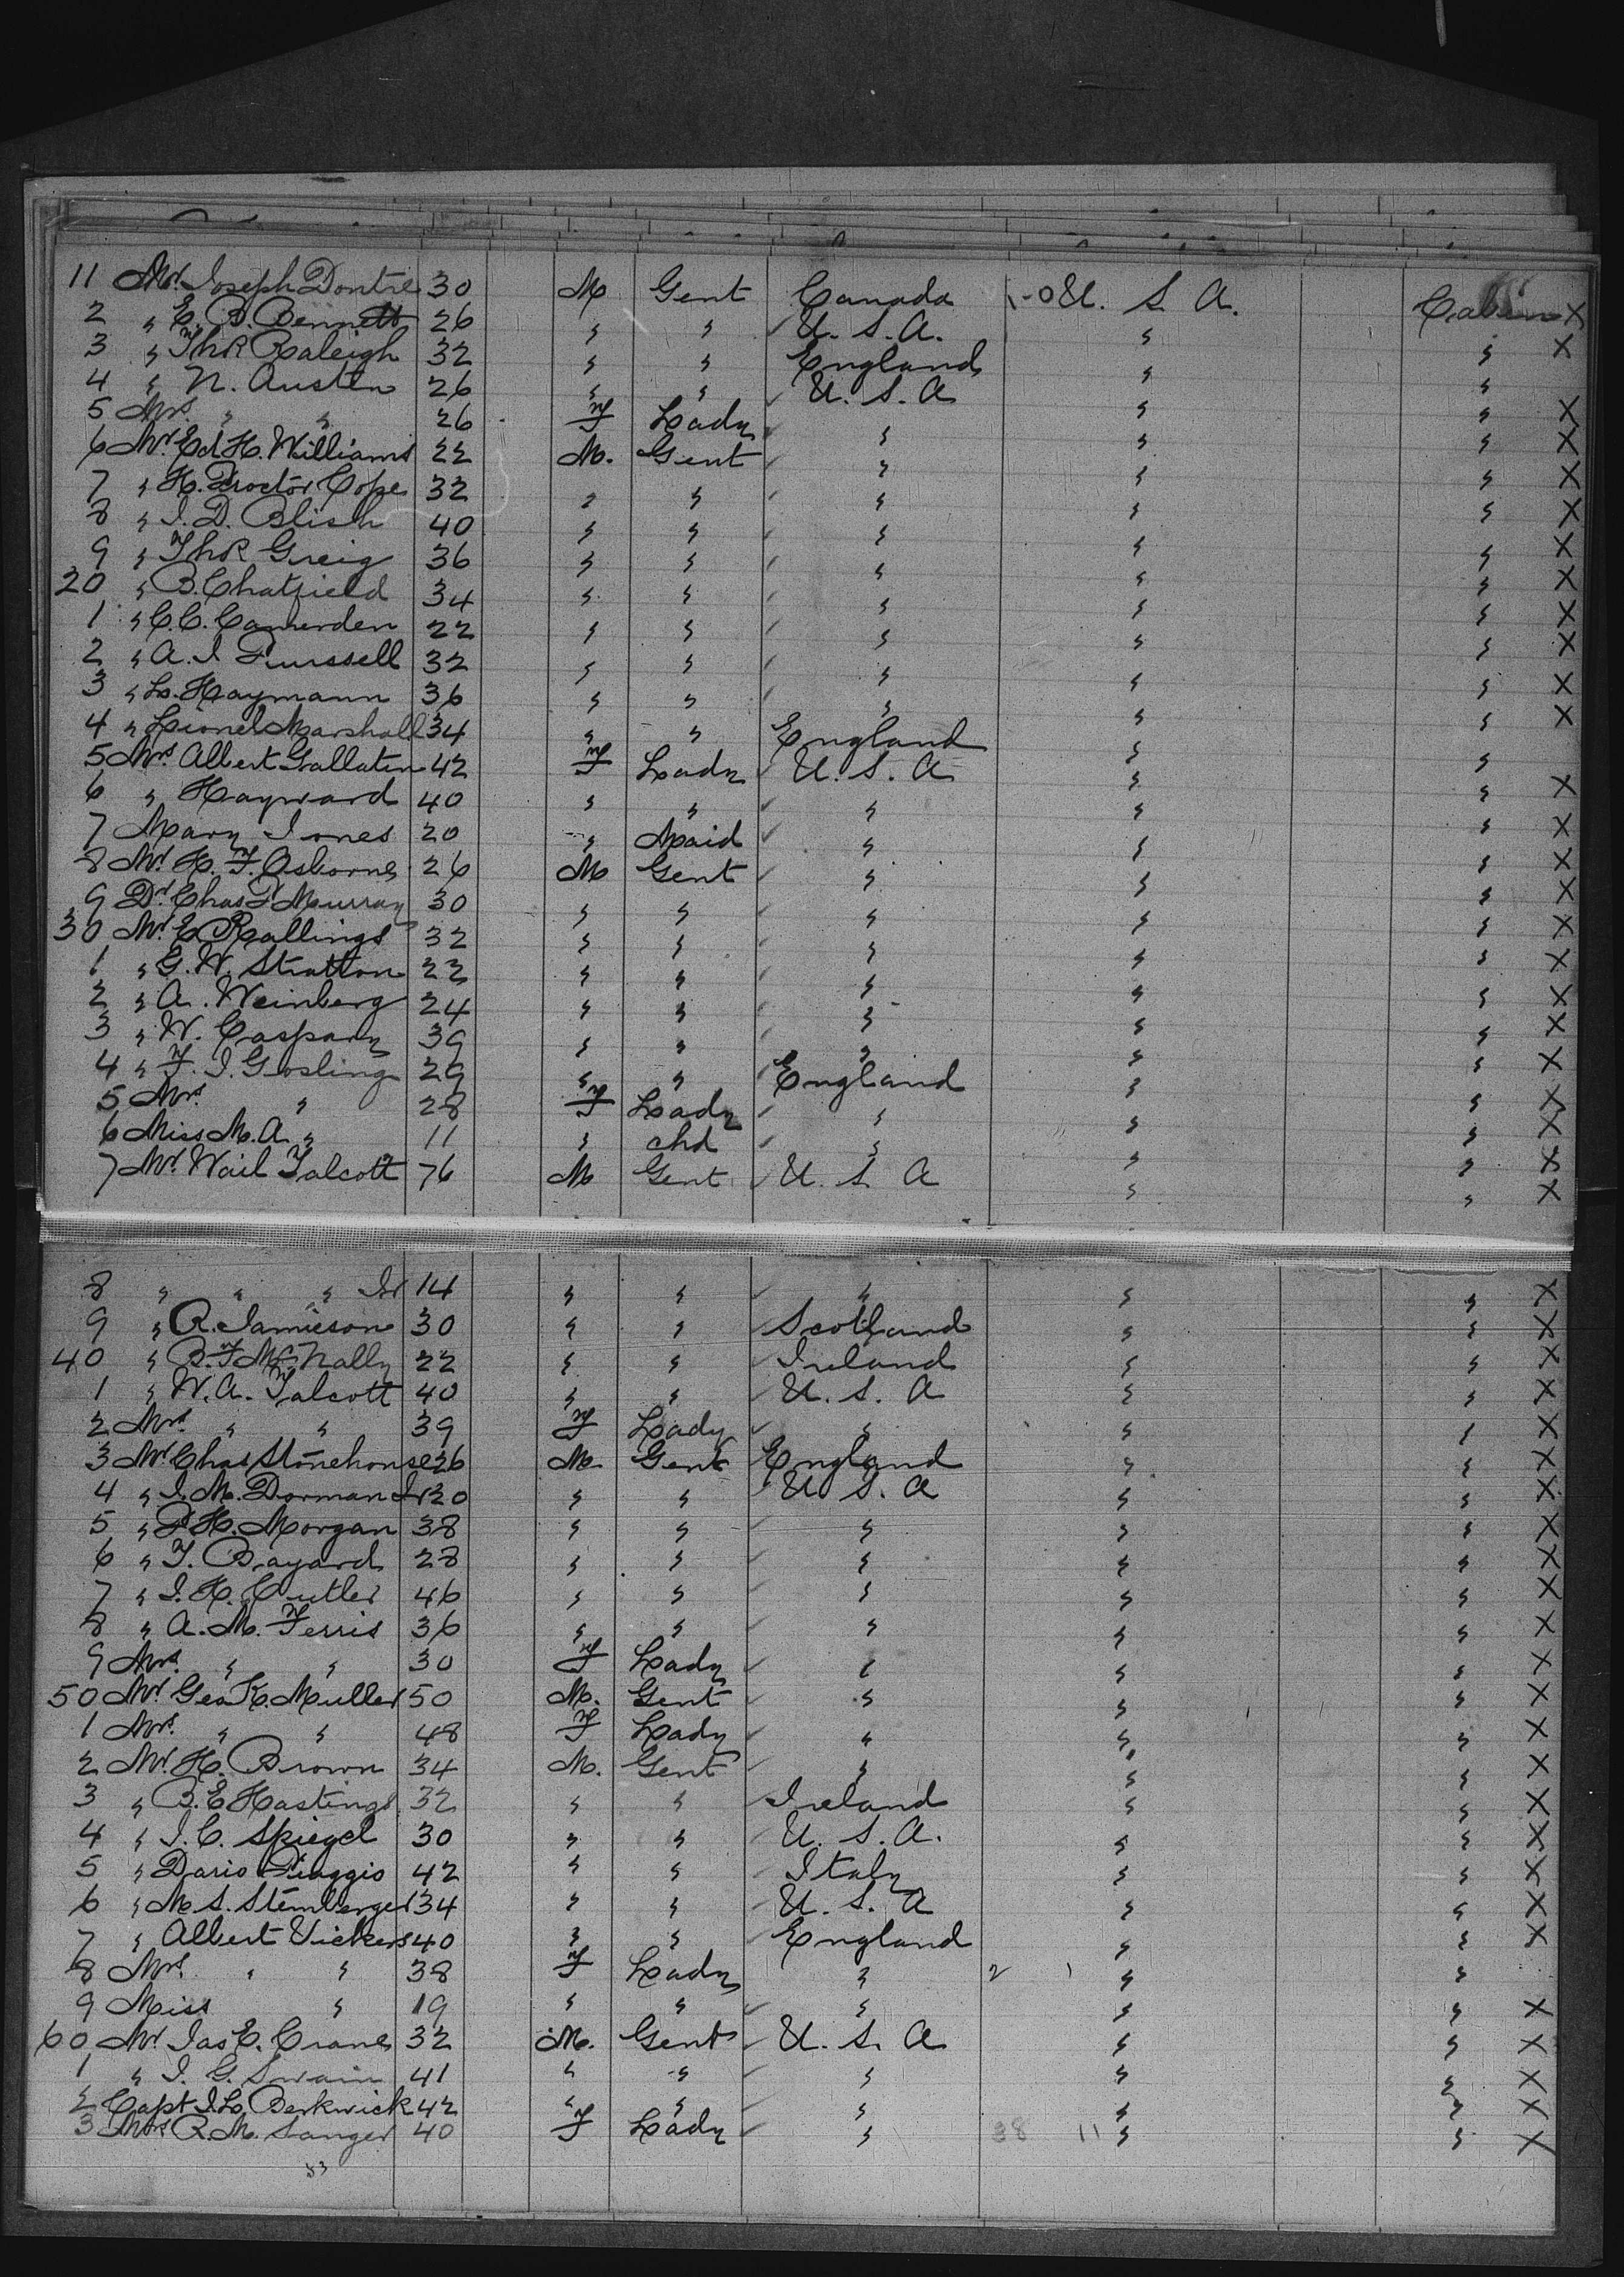 11 Mr. Joseph Dontre 30 M Gent Canada U. S. A. Cabin X
2 " E. B. Bennett 26 " " U. S. A. " " X
3 " Thos Raleigh 32 " " England " "
4 " N. Austen 26 " " U. S. A " " X
5 Mrs. " " 26 F Lady " " " X
6 Mr. Ed H. Williams 22 M. Gent " " " X
7 " H. Proctor Cope 32 " " " " " X
8 " J. D. Blish 40 " " " " " X
9 " Thos Greig 36 " " " " " X
20 " B. Chatfield 34 " " " " " X
1 " C. C. Camerden 22 " " " " " X
2 " A. J. Purssell 32 " " " " " X
3 " L. Haymann 36 " " " " " X
4 " Lionel Marshall 34 " " England " "
5 Mrs. Albert Gallaten 42 F Lady U. S. A " " X
6 " Hayward 40 " " " " " X
7 Mary Jones 20 " Maid " " " X
8 Mr. H. F. Osborne 26 M Gent " " " X
9 Dr. Chas F Murray 30 " " " " " X
30 Mr. E Rallings 32 " " " " " X
1 " G. W. Stratton 22 " " " " " X
2 " A. Weinberg 24 " " " " " X
3 " W. Caspary 39 " " " " " X
4 " F. J. Gosling 29 " " England " " X
5 Mrs. " 28 F Lady " " " X
6 Miss M. A. " 11 " chd " " " X
7 Mr. Wail Talcott 76 M Gent U. S. A " " X
8 " " " Jr 14 " " " " " X
9 " R. Jamieson 30 " " Scotland " " X
40 " B. F. McNally 22 " " Ireland " " X
1 " W. A. Talcott 40 " " U. S. A " " X
2 Mrs. " " 39 F Lady " " " X
3 Mr. Chas Stonehouse 26 M. Gent England " " X
4 " J. M. Dorman Jr 20 " " U. S. A " " X
5 " P. H. Morgan 38 " " " " " X
6 " T. Bayard 28 " " " " " X
7 " J. H. Cutler 46 " " " " " X
8 " A. M. Ferris 36 " " " " " X
9 Mrs. " " 30 F Lady " " " X
50 Mr. Geo K. Muller 50 M. Gent " " " X
1 Mrs. " " 48 F Lady " " " X
2 Mr. H. Brown 34 M. Gent " " " X
3 " B. E Hastings 32 " " Ireland " " X
4 " J. C. Spiegel 30 " " U. S. A. " " X
5 " Dario Piaggio 42 " " Italy " " X
6 " M. S. Sternberger 34 " " U. S. A " " X
7 " Albert Vickers 40 " " England " " X
8 Mrs. " " 38 F Lady " 2 " "
9 Miss " 19 " " " " " X
60 Mr. Jas E. Crane 32 M. Gent U. S. A " " X
1 " J. G. Swain 41 " " " " " X
2 Capt J. L. Berkwick 42 " " " " " X
3 Mrs R. M. Sanger 40 F Lady " 38 11 " " X
53